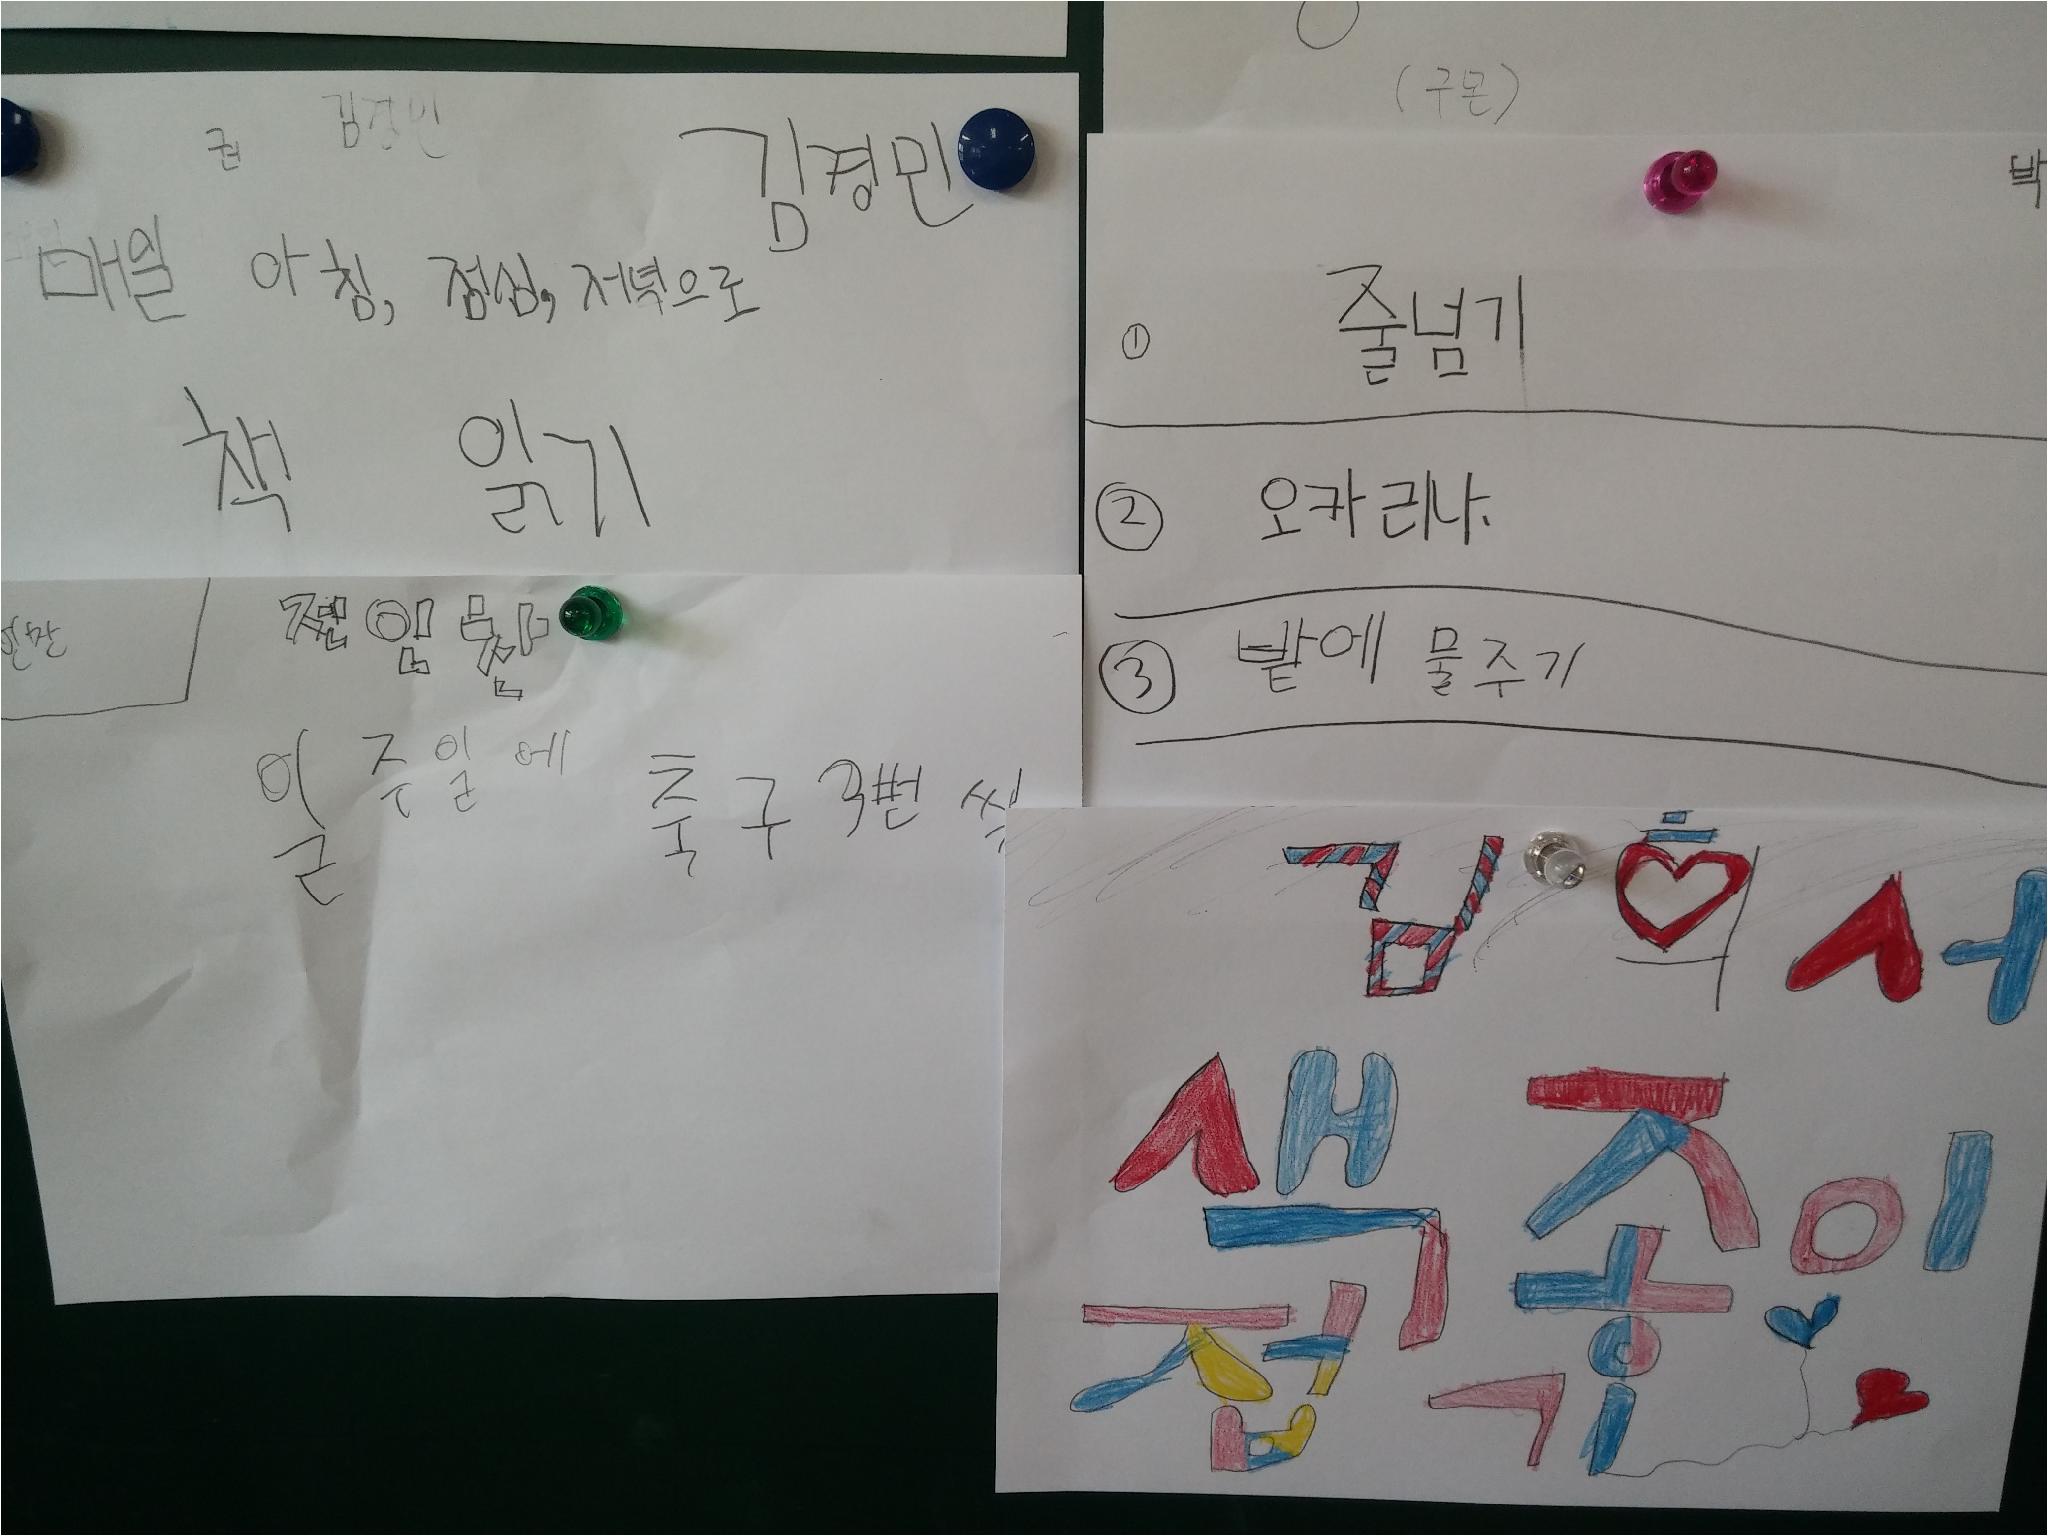 김경민
김경민
매일 아침, 점심, 저녁으로
책 읽기
(구몬)
박
① 줄넘기
② 오카리나
③ 밭에 물주기
일주일에 축구 3번씩
김희서
색종이
접기